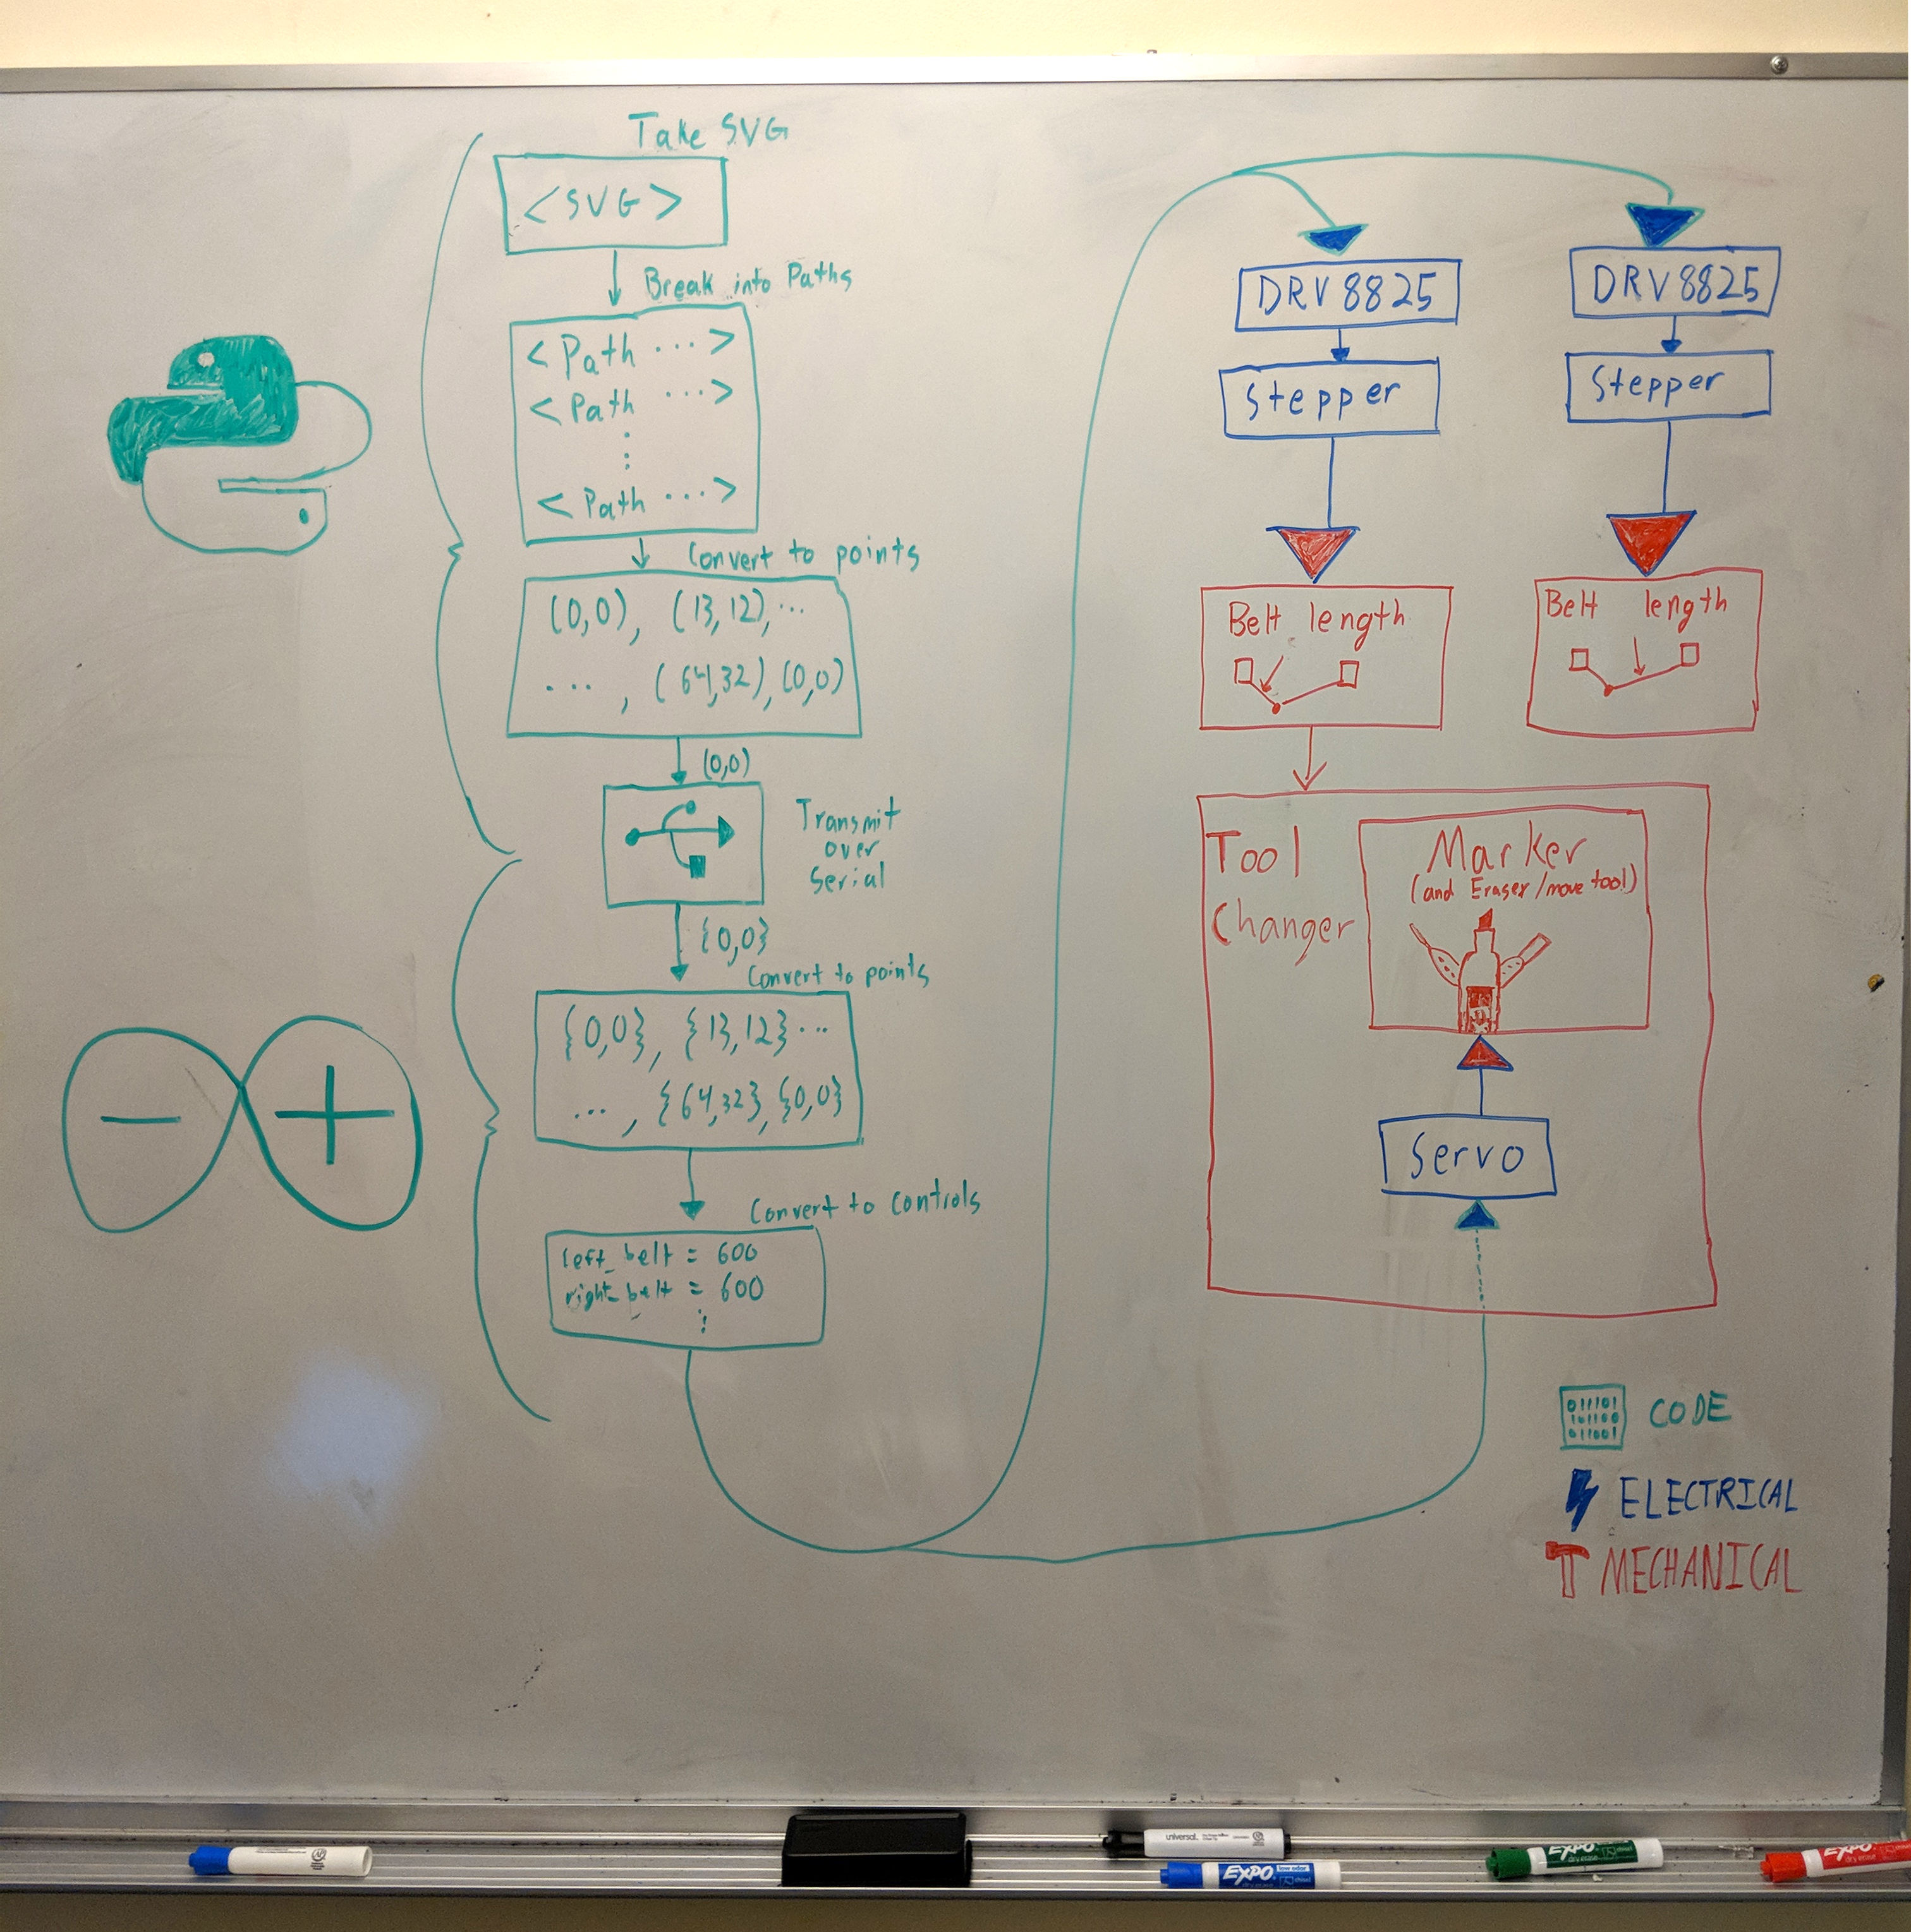 Take SVG
<SVG>
Break into Paths
<Path ...>
<Path ...>
<Path ...>
Convert to points
(0,0), (13,12),...
..., (64,32),(0,0)
(0,0)
Transmit
over
Serial
{0,0}
Convert to points
{0,0}, {13,12}...
..., {64,32},{0,0}
Convert to controls
left_belt = 600
right_belt = 600
DRV8825
Stepper
Belt length
DRV8825
Stepper
Belt length
Tool
Changer
Marker
(and Eraser/move tool)
Servo
011101
101100
011001
CODE
ELECTRICAL
MECHANICAL
universal.
EXPO
low odor
dry erase
chisel
EXPO
dry erase
EXPO
dry erase